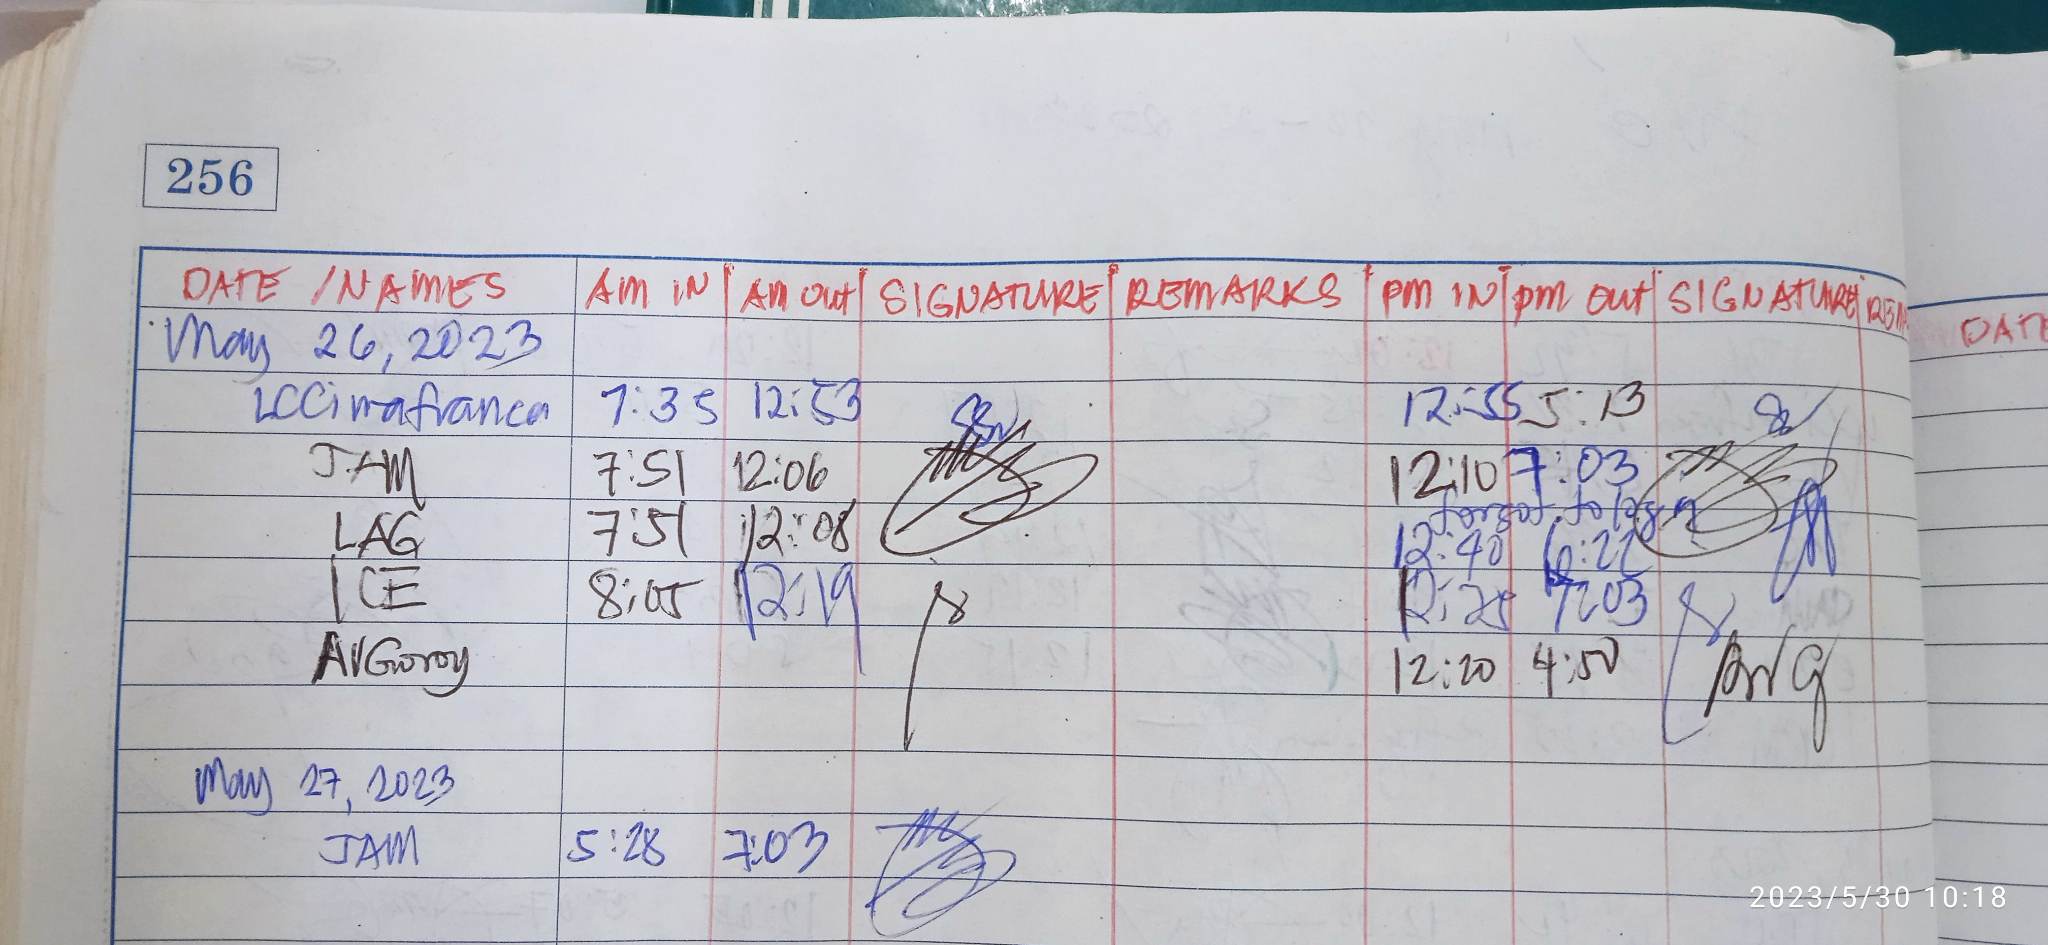 256
DATE /NAMES AM IN AM OUT SIGNATURE REMARKS PM IN PM OUT SIGNATURE REM
DATE
May 26, 2023
LCCimafranca 7:35 12:53 12:55 5:13
JAM 7:51 12:06 12:10 7:03
LAG 7:51 12:08 12:40 6:22
ICE 8:05 12:19 12:25 7:03
AVGoroy 12:20 4:50 AVG
May 27, 2023
JAM 5:28 7:03
2023/5/30 10:18